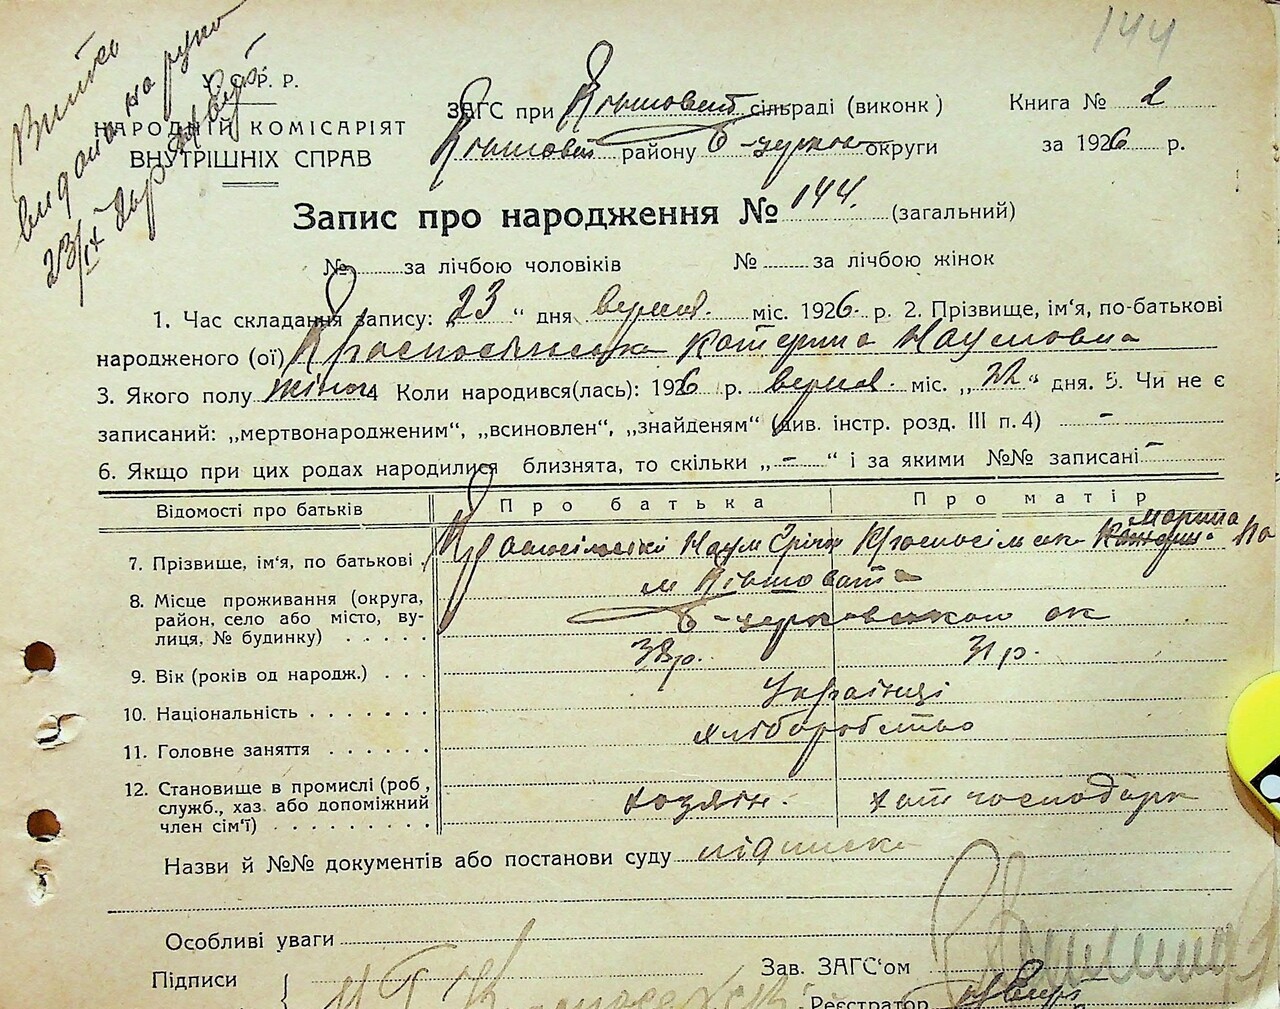 144
Витяг
видано на руки
23/IX
У. С. Р. Р.
НАРОДНІЙ КОМІСАРІЯТ
ВНУТРІШНІХ СПРАВ
ЗАГС при Кошоват. сільраді (виконк)
Кошоват. району Б-церков. округи
Книга № 2
за 1926 р.
Запис про народження № 144. (загальний)
№ за лічбою чоловіків № за лічбою жінок
1. Час складання запису: 23 " дня вересня міс. 1926 р. 2. Прізвище, ім'я, по-батькові
народженого (ої) Красносільська Катерина Наумовна
3. Якого полу жіноч 4 Коли народився(лась): 1926 р. вересня міс. „22" дня. 5. Чи не є
записаний: „мертвонародженим", „всиновлен", „знайденям" (див. інстр. розд. III п. 4) -
6. Якщо при цих родах народилися близнята, то скільки „-" і за якими №№ записані -
Відомості про батьків Про батька Про матір
7. Прізвище, ім'я, по батькові Красносільскі Наум Красносільска Катерина Марина
8. Місце проживання (округа, район, село або місто, вулиця, № будинку) м Кошовата
Б-церковської ок
9. Вік (років од народж.) 38 р. 31 р.
10. Національність Українці
11. Головне заняття хліборобство
12. Становище в промислі (роб, служб., хаз. або допоміжний член сім'ї) хозяїн. хат господарка
Назви й №№ документів або постанови суду підписка
Особливі уваги
Підписи
Зав. ЗАГС'ом
Реєстратор